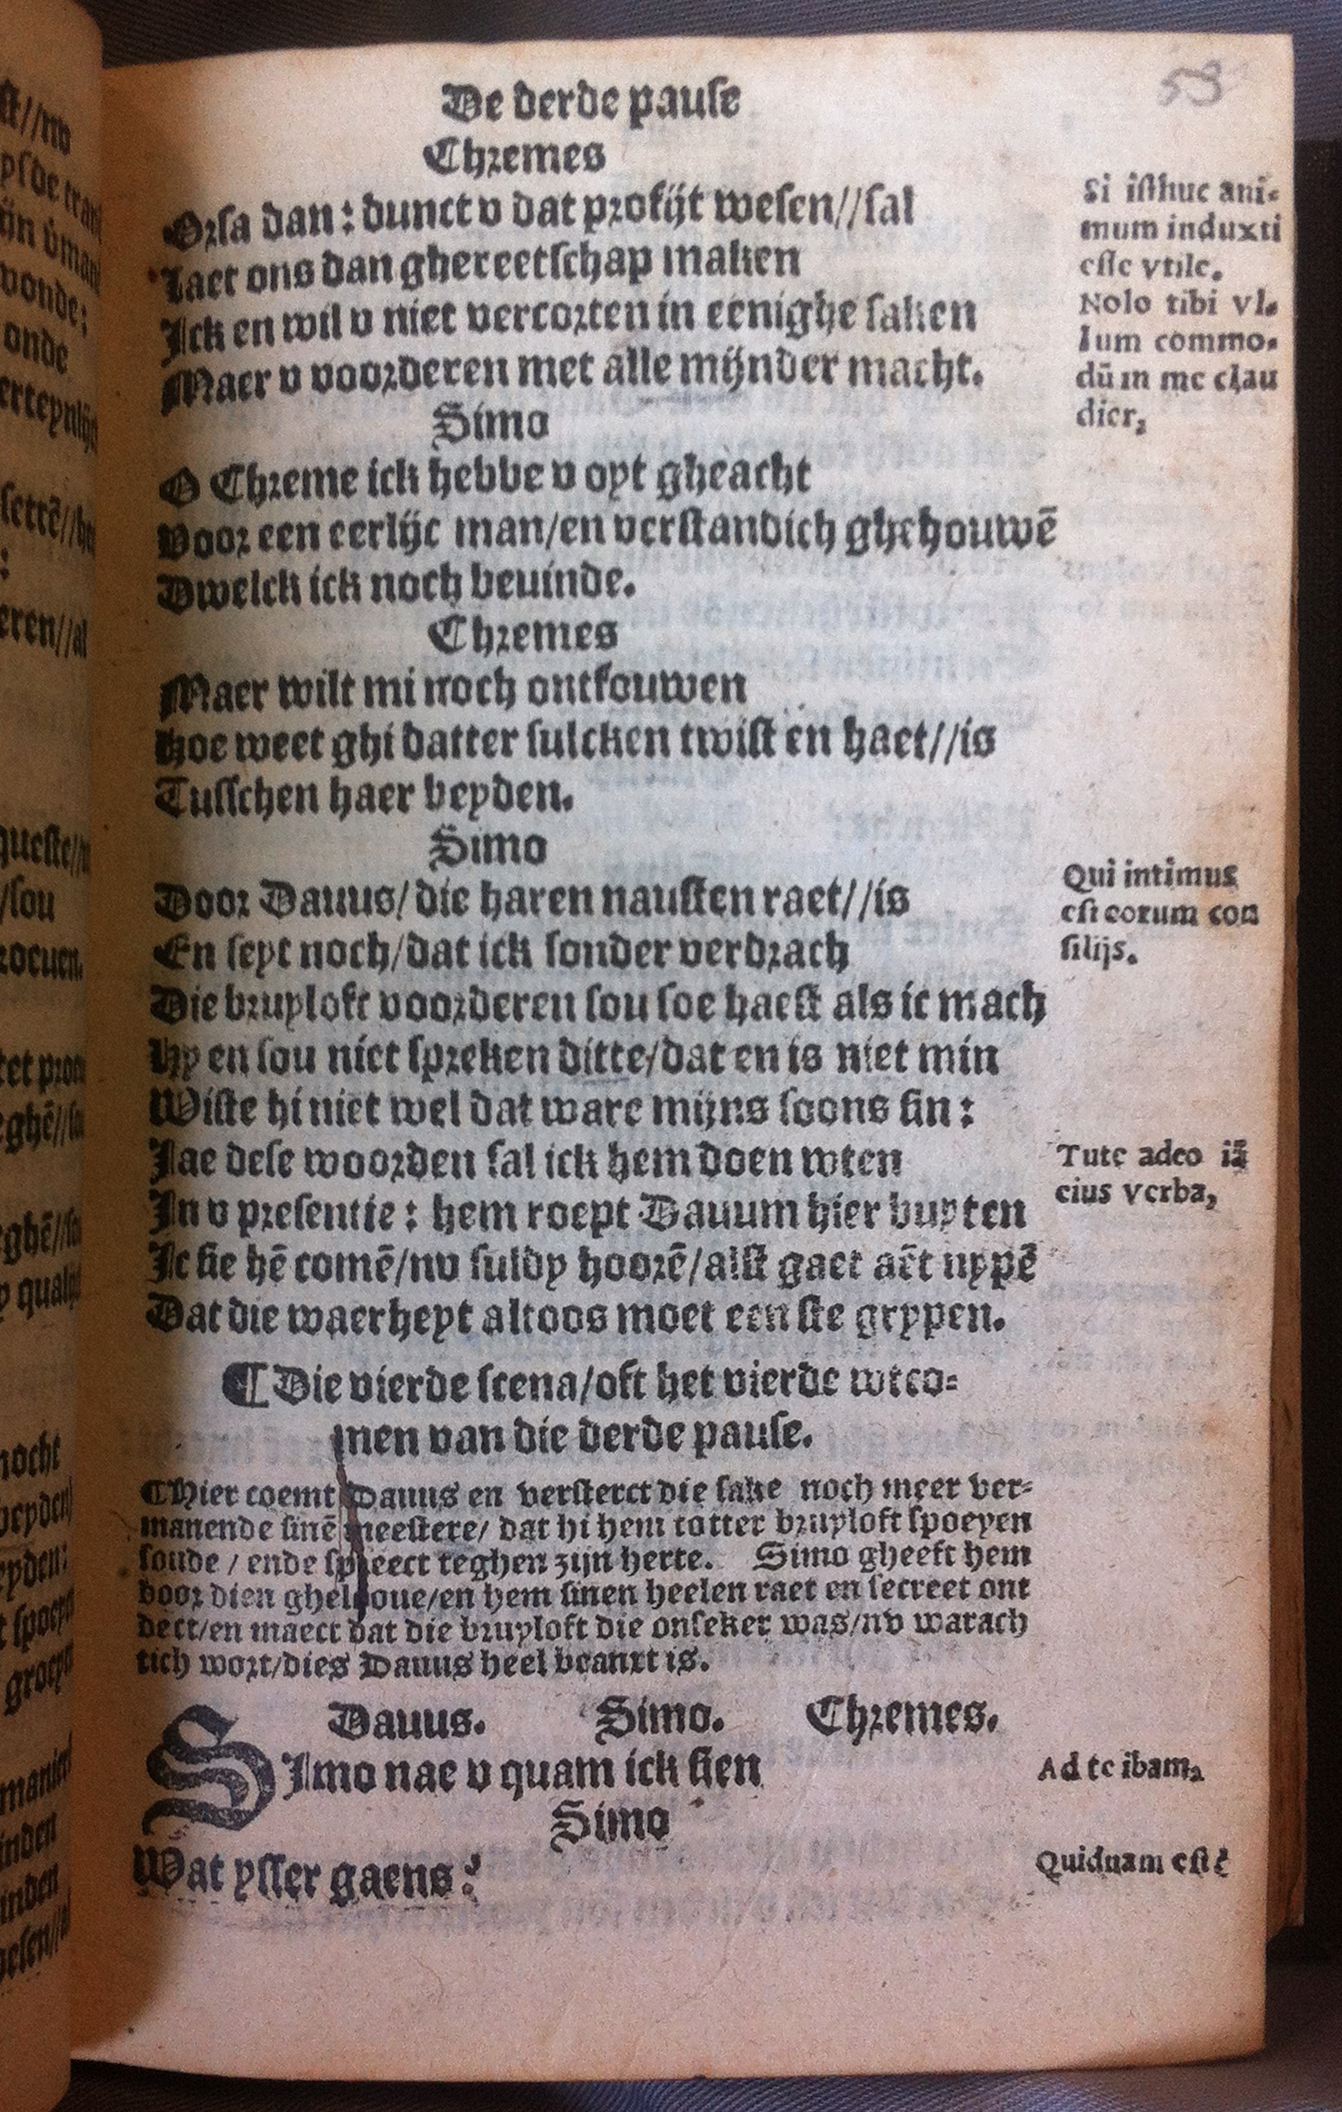 De derde pause
53
Chremes
Orsa dan: dunct v dat profijt wesen//sal
Laet ons dan ghereetschap maken
Ick en wil v niet vercorten in eenighe saken
Maer v voorderen met alle mijnder macht.
Simo
O Chreme ick hebbe v oyt gheacht
Voor een eerlijc man/en verstandich ghehouwē
Dwelck ick noch beuinde.
Chremes
Maer wilt mi noch ontfouwen
Hoe weet ghi datter sulcken twist en haet//is
Tusschen haer beyden.
Simo
Door Dauus/die haren nausten raet//is
En seyt noch/dat ick sonder verdrach
Die bruyloft voorderen sou soe haest als ic mach
Hy en sou niet spreken ditte/dat en is niet min
Wiste hi niet wel dat ware mijns soons sin:
Jae dese woorden sal ick hem doen wten
In v presentie: hem roept Dauum hier buyten
Ic sie hē comē/nv suldy hoorē/alst gaet aēt nypē
Dat die waerheyt altoos moet een ste grypen.
¶ Die vierde scena/oft het vierde wtco-
men van die derde pause.
¶ Hier coemt Dauus en versterct die sake noch meer ver-
manende sinē meestere/ dat hi hem totter bruyloft spoeyen
soude / ende spreect teghen zijn herte. Simo gheeft hem
voor dien gheloue/en hem sinen heelen raet en secreet ont
dect/en maect dat die bruyloft die onseker was/nv warach
tich wort/dies Dauus heel beanxt is.
Dauus. Simo. Chremes.
SImo nae v quam ick sien
Simo
Wat ysser gaens?
Si isthuc ani-
mum induxti
esse vtile.
Nolo tibi vl-
lum commo-
dū in me clau
dier,
Qui intimus
est eorum con
silijs.
Tute adeo iā
eius verba,
Ad te ibam,
Quidnam est?